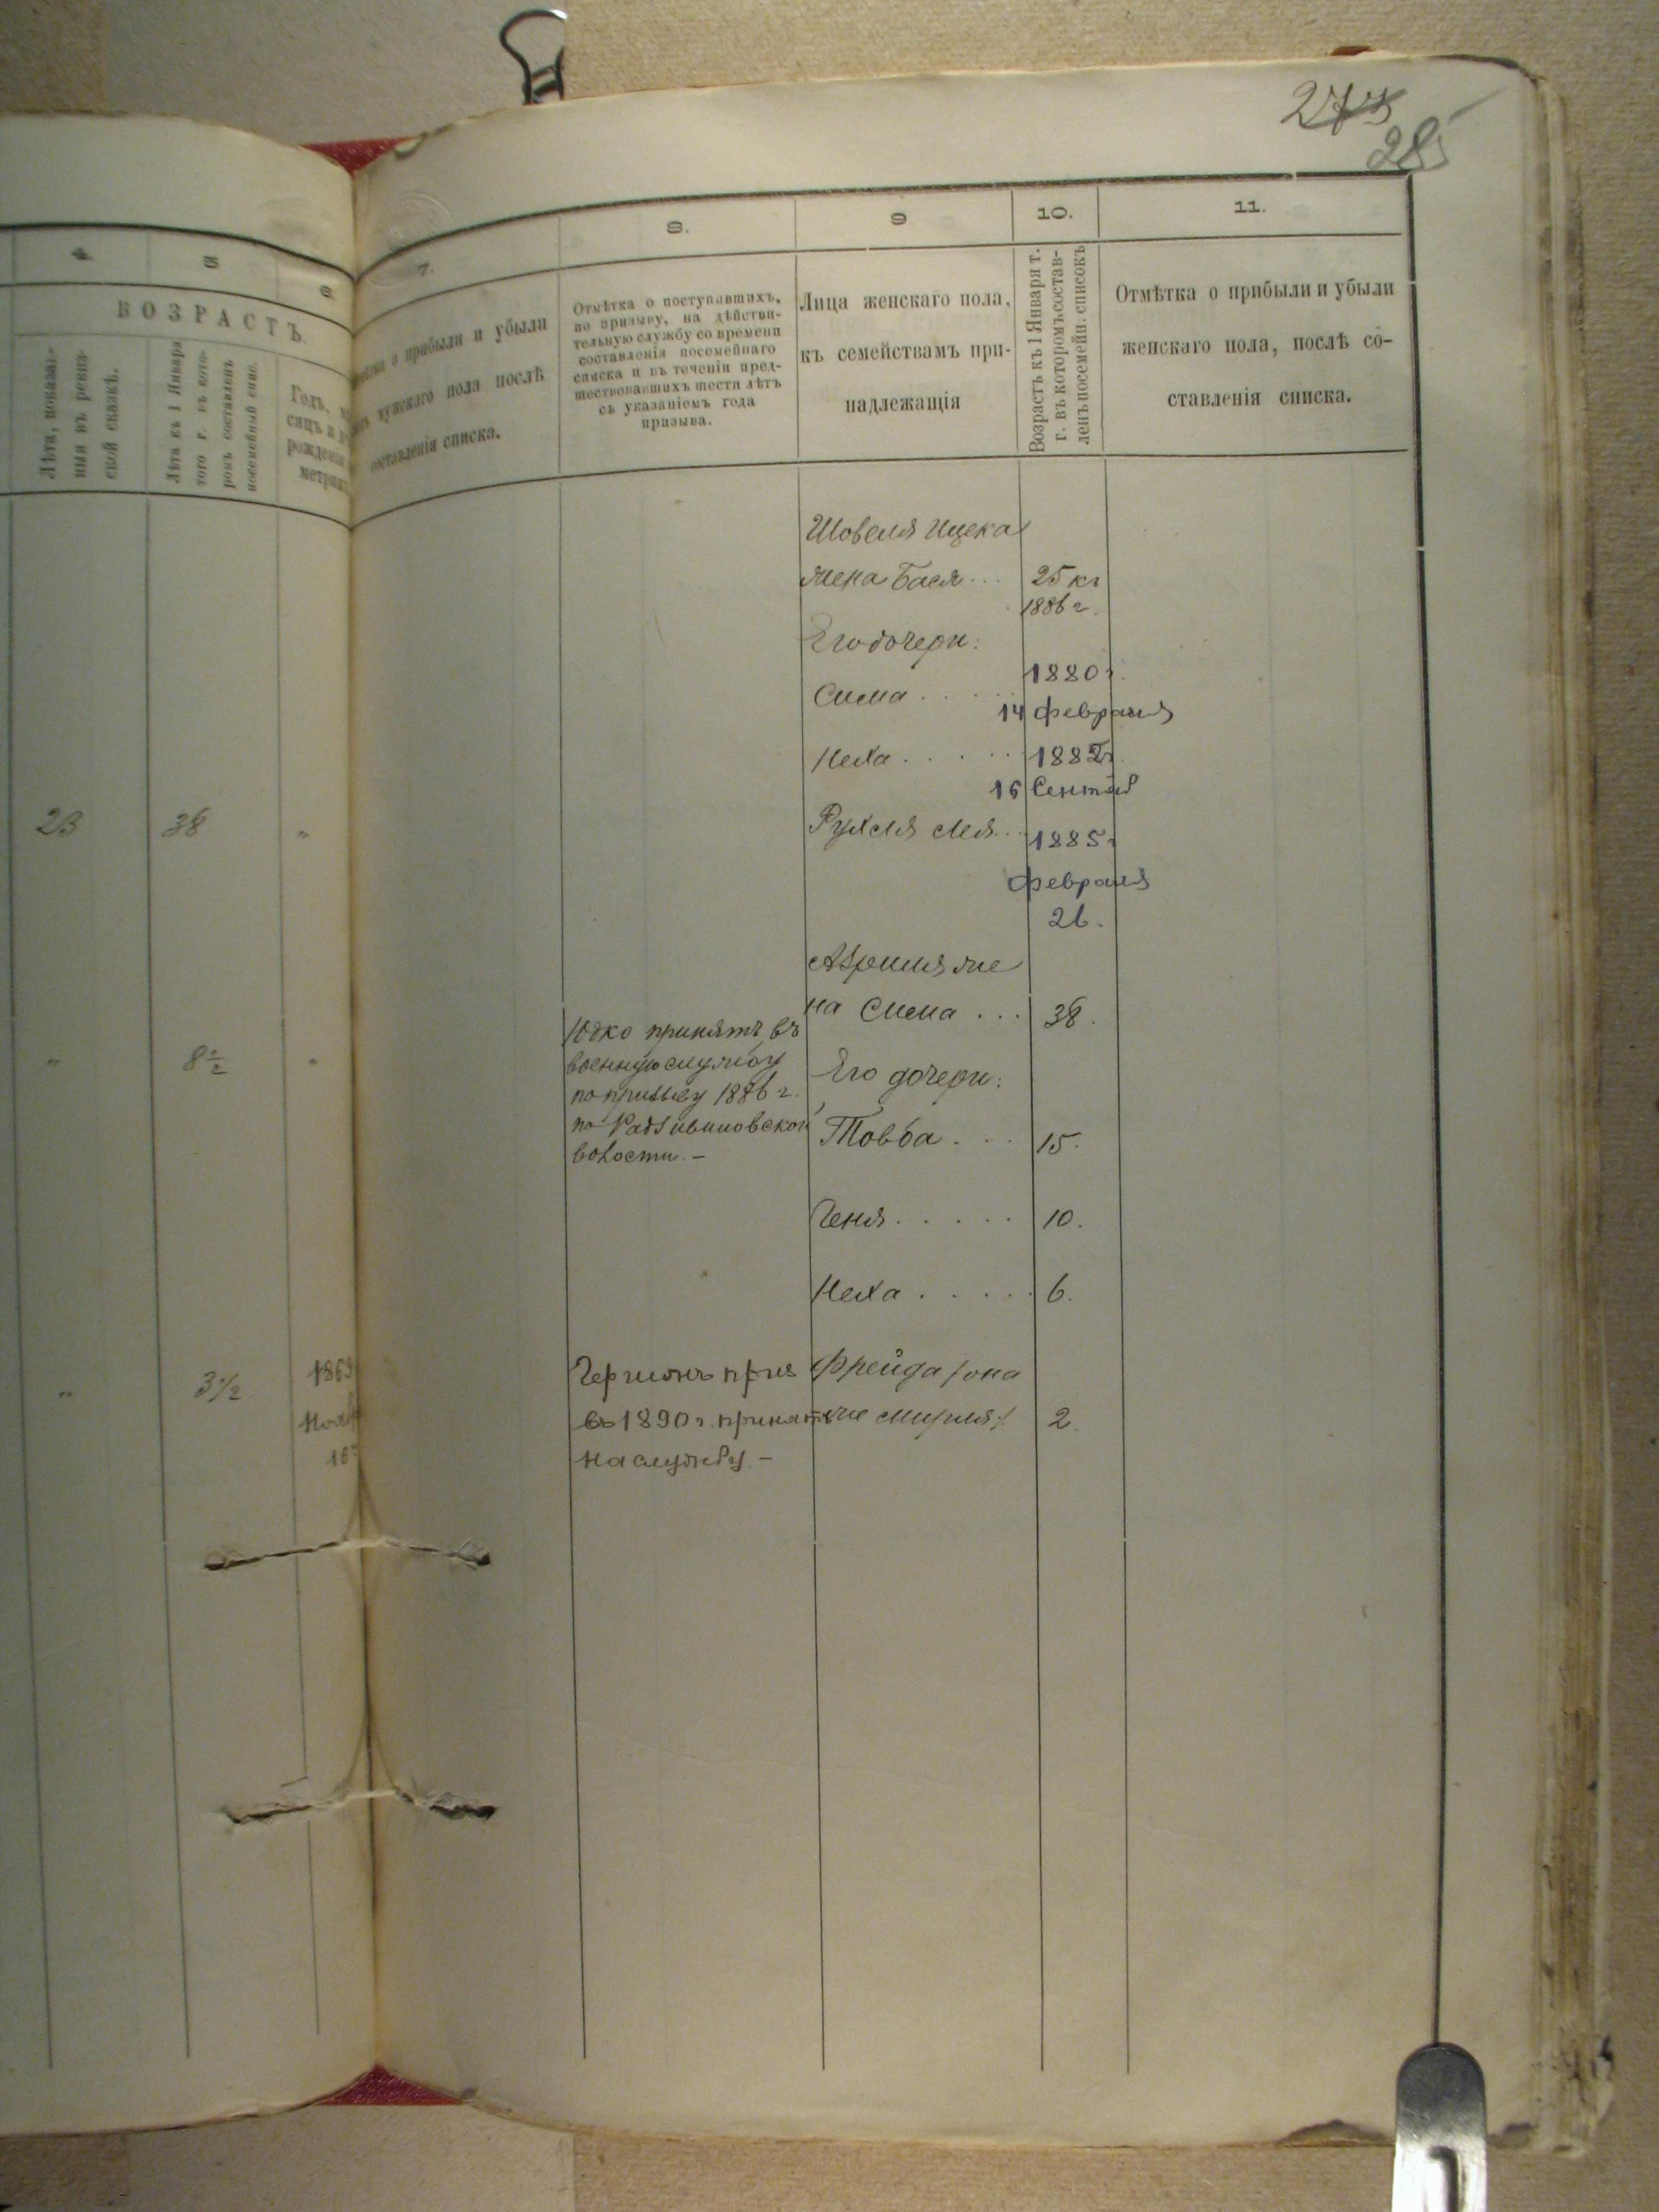 273
28
4.
5
6
ВОЗРАСТЪ.
Лѣта, показан-
ныя въ ревиз-
ской сказкѣ.
Лѣта къ 1 Января
того г. въ кото-
ромъ составленъ
посемейный спис.
Годъ, м
сяцъ и д
рожденія
метрик
23
38
"
"
8½
"
"
3½
1869
Нояб
16
7.
о прибыли и убыли
мужскаго пола послѣ
составленія списка.
8.
Отмѣтка о поступившихъ,
по призыву, на дѣйстви-
тельную службу со времени
составленія посемейнаго
списка и въ теченіи пред-
шествовавшихъ шести лѣтъ
съ указаніемъ года
призыва.
Юдко принятъ въ
военную службу
по призыву 1886 г.
по Радзивиловской
волости. –
Гершонъ при
въ 1890 г. принятъ
на службу. –
9
Лица женскаго пола,
къ семействамъ при-
надлежащія
Шовеля Ицека
жена Бася ...
Его дочери:
Сима . . . .
Неха . . . . .
Рухля Лея . .
жe
на Сима ...
Его дочери:
Товба . . .
Геня . . . . .
Неха . . . . .
Фрейда /она
же Мирля/.
10.
Возрастъ къ 1 Января т.
г. въ которомъ состав-
ленъ посемейн. списокъ
25 къ
1886 г.
1880 г.
14 Февраля
1882 г.
16 Сентяб
1885 г
Февраля
26.
38.
15.
10.
6.
2.
11.
Отмѣтка о прибыли и убыли
женскаго пола, послѣ со-
ставленія списка.